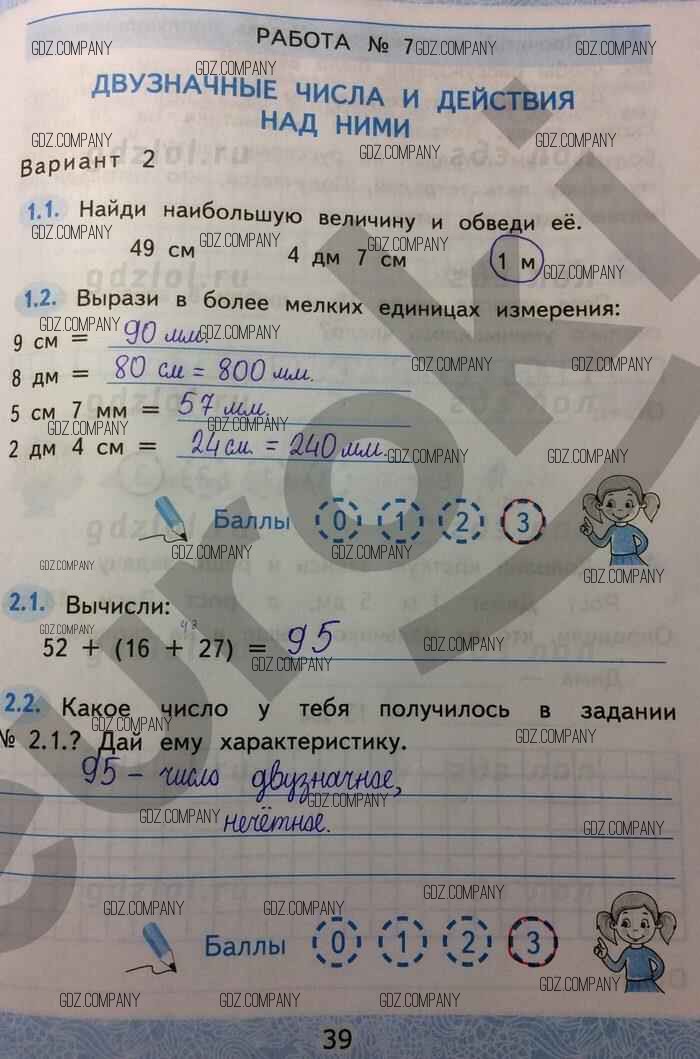 РАБОТА № 7
ДВУЗНАЧНЫЕ ЧИСЛА И ДЕЙСТВИЯ
НАД НИМИ
Вариант 2
1.1. Найди наибольшую величину и обведи её.
49 см 4 дм 7 см 1 м
1.2. Вырази в более мелких единицах измерения:
9 см = 90 мм.
8 дм = 80 см = 800 мм.
5 см 7 мм = 57 мм.
2 дм 4 см = 24 см. = 240 мм.
Баллы 0 1 2 3
2.1. Вычисли:
43
52 + (16 + 27) = 95
2.2. Какое число у тебя получилось в задании
№ 2.1.? Дай ему характеристику.
95 – число двузначное,
нечётное.
Баллы 0 1 2 3
39
GDZ.COMPANY